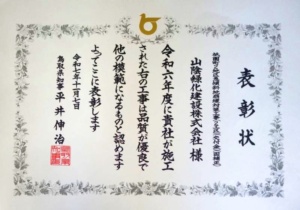 表彰状
山陰緑化建設株式会社 様
令和六年度に貴社が施工
された右の工事は品質が優良で
他の模範になるものと認めます
よってここに表彰します
令和七年十一月七日
鳥取県知事 平井伸治